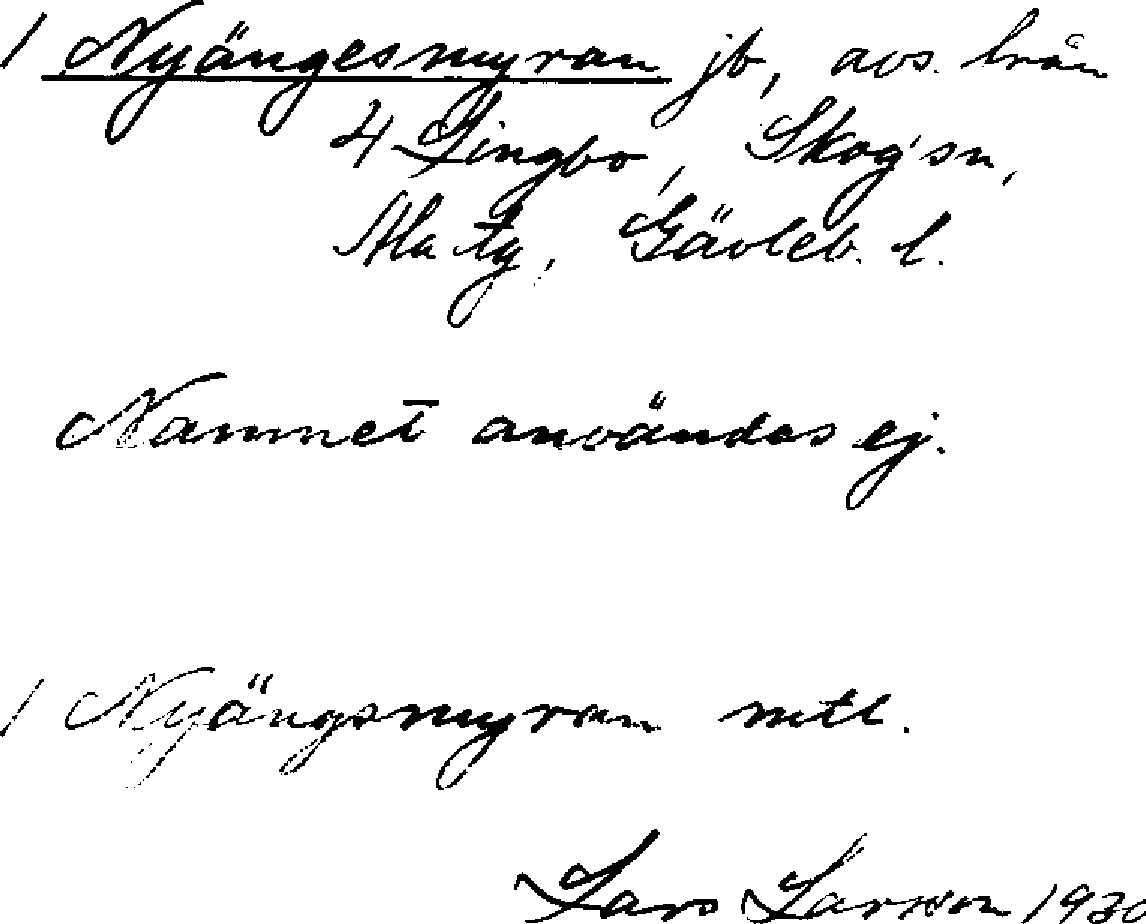 1 Nyängesmyran jb, avs. från
4 Lingbo, Skog sn,
Ala tg, Gävleb. l.
Namnet användes ej.
1 Nyängsmyran mtl.
Lars Larsson 1930